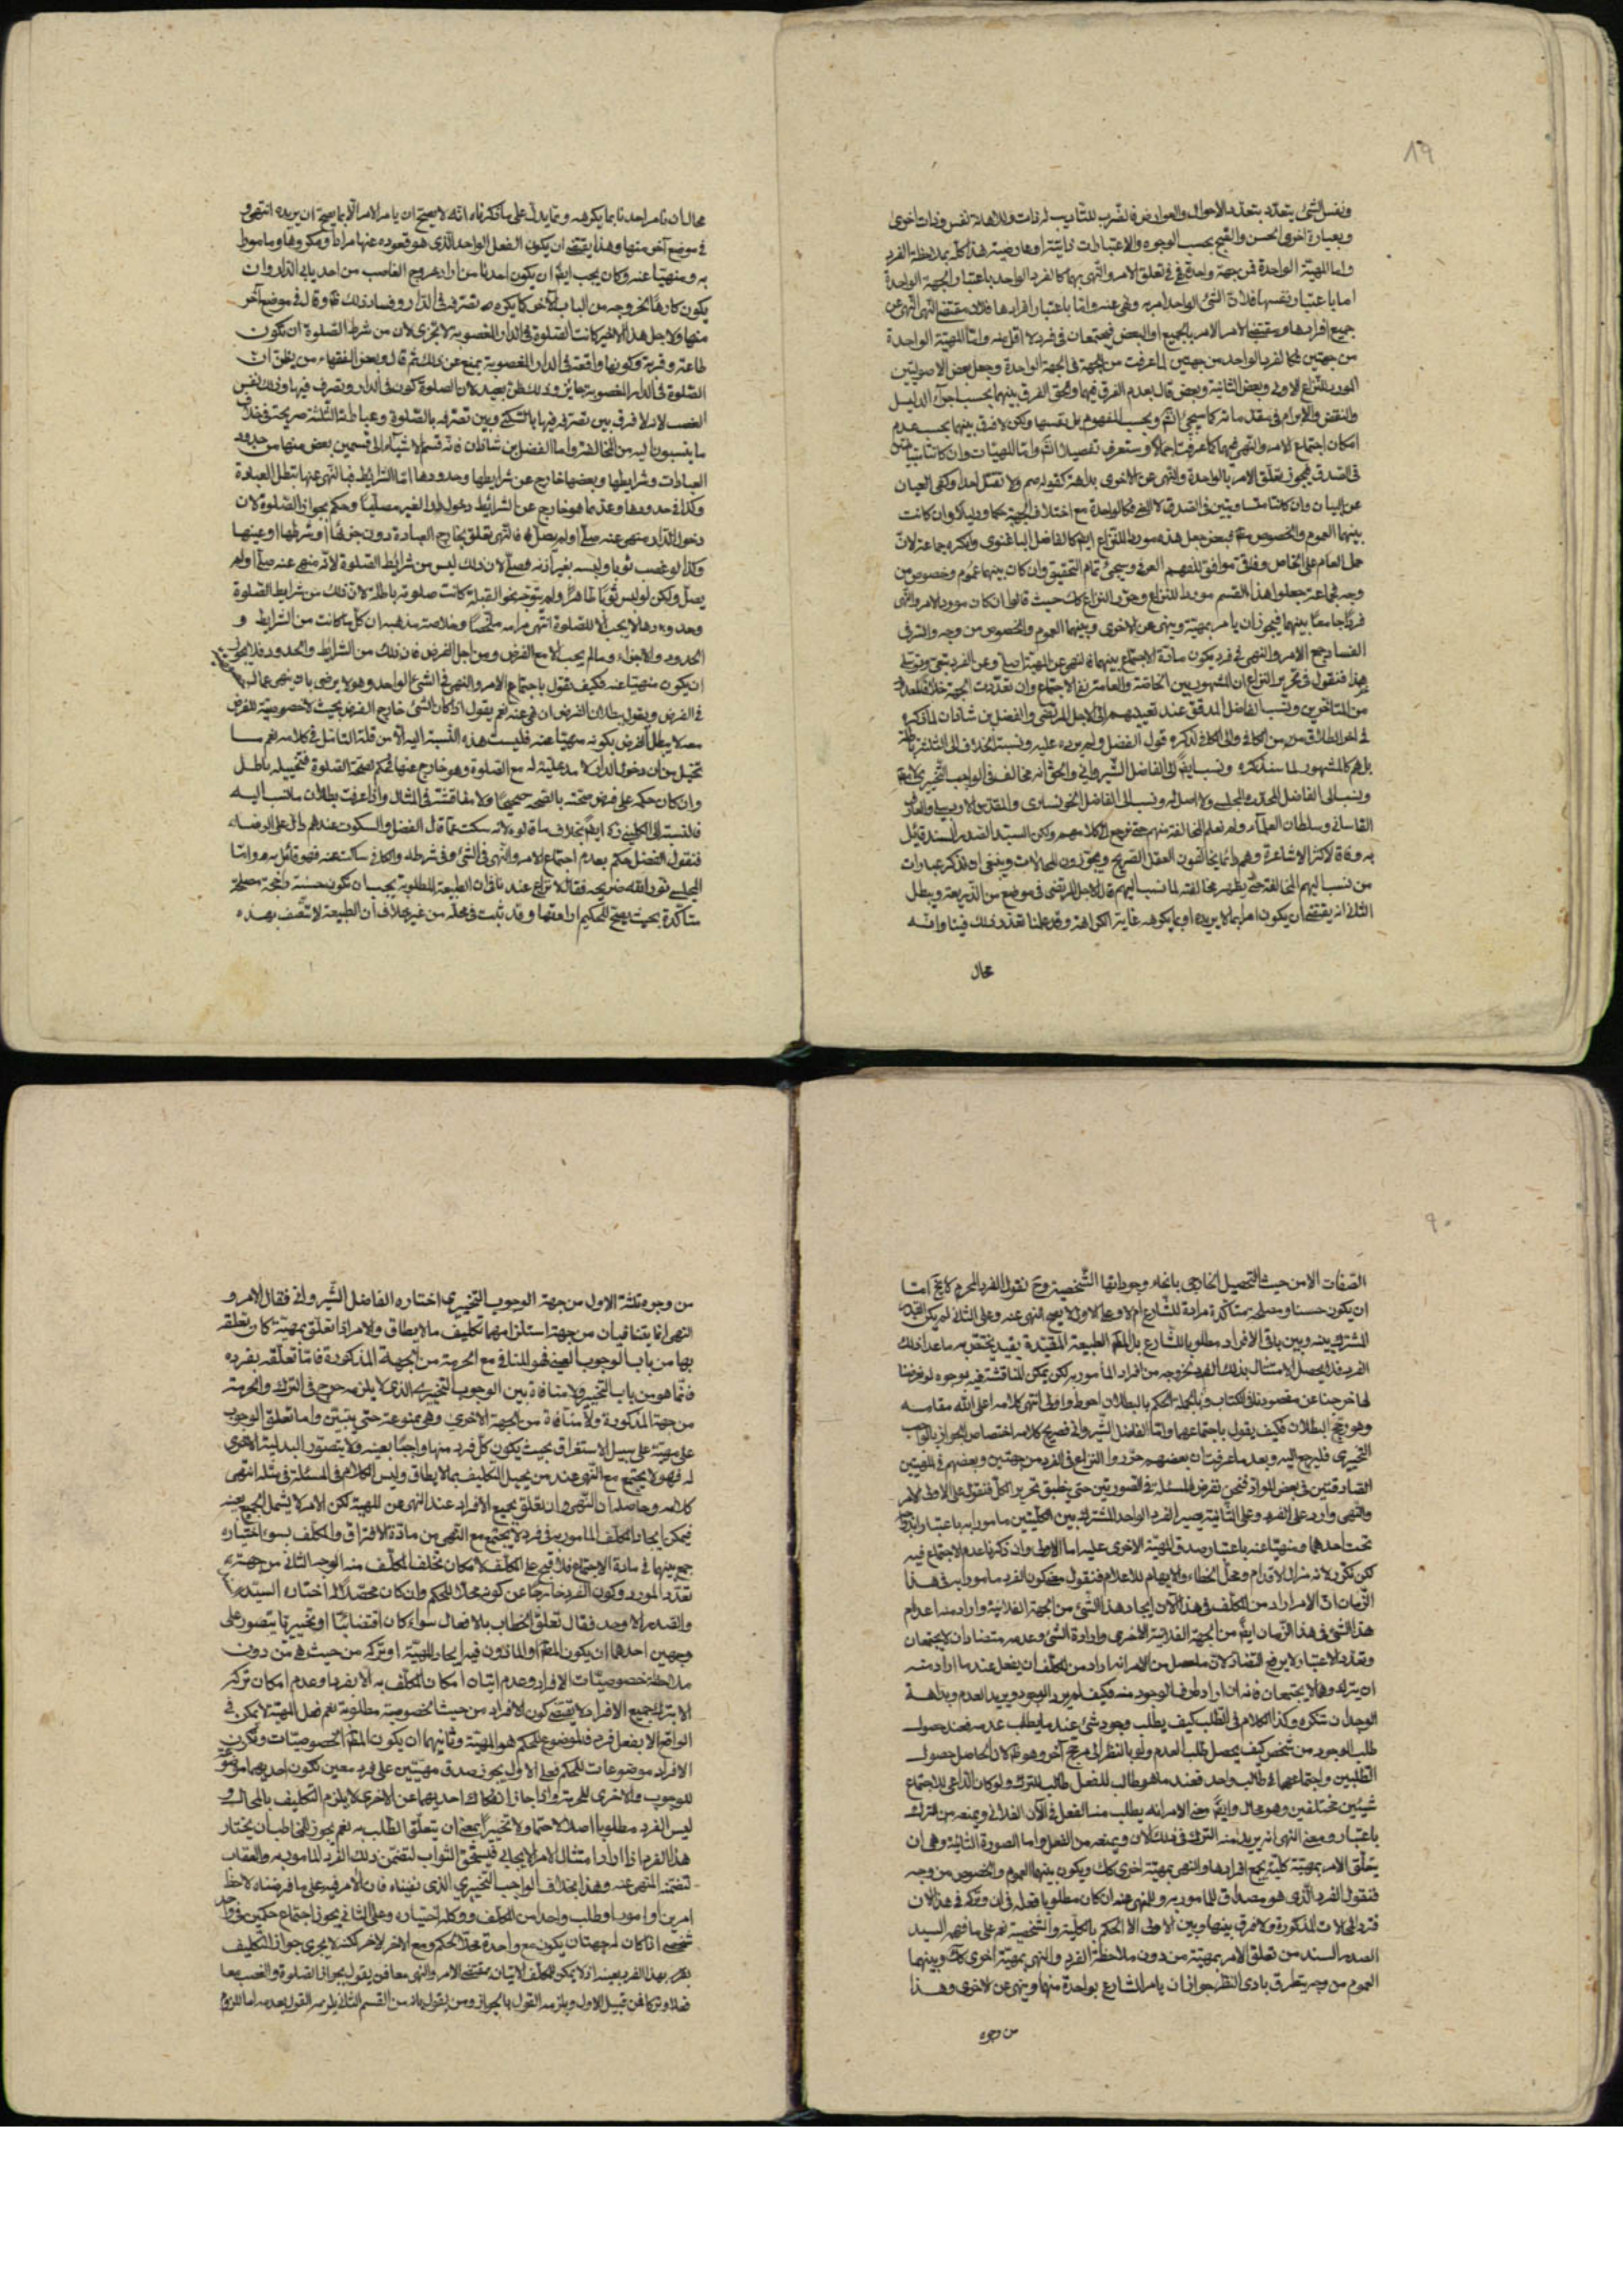 ١٩
ونفس الشئ يتعدد بتعدد الاحوال والعوارض فالضرب للتأديب له ذات وللاهانة نفس وذات اخرى
وبعبارة اخرى الحسن والقبح بحسب الوجوه والاعتبارات ذاتية او عارضية هذا كله بملاحظة الفرد
واما المهية الواحدة فمن جهة واحدة فهي في تعلق الامر والنهى بهما كالفرد الواحد باعتبار الجهة الواحدة
اما باعتبار نفسها فلان الشئ الواحد امر به ونهى عنه واما باعتبار افرادها فلان مقتضى النهى النهى عن
جميع افرادها ومقتضى الامر الامر بالجميع او البعض فيجتمعان في فرد لا اقل منه واما المهية الواحدة
من جهتين فكالفرد الواحد من جهتين لما عرفت من الجهة في الجهة الواحدة وجعل بعض الاصوليين
المورد للنزاع الاولى وبعض الثانية وبعض قال بعدم الفرق فيهما والحق الفرق بينهما بحسب اجراء الدليل
والنقض والابرام في بعد ما مر كما سيجئ الله وبحسب المفهوم بل نفسهما ولكن لا فرق بينهما بحسب عدم
امكان اجتماع الامر والنهى فيهما كما عرفت اجمالا وستعرف تفصيلا الله واما المهيات وان كانتا متباينتين
في الصدق فيجوز تعلق الامر بالواحدة والنهى عن الاخرى بداهة كقوله صم ولا تقتل احدا وكفى العيان
عن البيان وان كانتا متساويتين في الصدق فكالواحدة مع اختلاف الجهة حكما ودليلا وان كانت
بينهما العموم والخصوص فبعض جعل هذه موردا للنزاع ايضا كالفاضل الباغنوى وانكره جماعة لان
حمل العام على الخاص وفاقي موافق للفهم العرفي وسيجئ تمام التحقيق وان كان بينهما عموم وخصوص من
وجه فجماعة جعلوا هذا القسم موردا للنزاع وحرر النزاع كك حيث قالوا ان كان مورد الامر والنهى
فردا جامعا بينهما فيجوز ان يامر بمهية وينهى عن الاخرى وبينهما العموم والخصوص من وجه والترقى
الفساد جمع الامر والنهى في فرد يكون مادة الاجتماع بينهما فالنهى عن المهية اصلى وعن الفرد تبعى وتوصلى
هذا فنقول في تحرير النزاع ان المشهور بين الخاصة والعامة نفى الاجتماع وان تعددت الجهة خلافا لعدة
من المتاخرين ونسب الفاضل المدقق عند تعيينهم الى الاجل المرتضى والفضل بن شاذان لما ذكره
في اخر الطلاق من الكافي والى الكافي لذكره قول الفضل ولم يرده عليه ونسبة الخلاف الى الثلثة باطلة
بل هم كالمشهور لما سنذكره ونسب ايضا الى الفاضل الشيروانى والحق انه مخالف في الواجب التخييرى لا مطلقا
ونسب الى الفاضل المحدث المجلسى ولا اصل له ونسب الى الفاضل الخونسارى والمقدس الاردبيلى والعارف
القاسانى وسلطان العلماء ولم نعلم المخالفة منهم حتى نرجع الى كلامهم ولكن السيد الصدر السند قائل
به وفاقا لاكثر الاشاعرة وهم دائما يخالفون العقل الصريح ويجوزون المحالات وينبغى ان نذكر عبارات
من نسب اليهم المخالفة حتى يظهر مخالفته لما نسب اليهم قال الاجل المرتضى في موضع من الذريعة ويبطل
الثانى انه يقتضى ان يكون امرا بما لا يريده او بما يكرهه غاية الكراهة وقد علمنا تعذر ذلك فينا وانه
محال
محال ان نامر احدنا بما يكرهه ومما يدل على ما ذكرناه انه لا يصح ان يامر الامر الا بما يصح ان يريده انتهى و
في موضع آخر منها وهذا يقتضى ان يكون الفعل الواحد الذى هو قعوده عنها مرادا ومكروها ومامورا
به ومنهيا عنه وكان يجب ايضا ان يكون احدنا من اراد خروج الغاصب من احد بابى الدار وان
يكون كارها لخروجه من الباب الآخر كما يكره تصرفه في الدار وفساد ذلك وقال في موضع آخر
منها ولاجل هذا الاخير كانت الصلوة في الدار المغصوبة لا تجزى لان من شرط الصلوة ان تكون
طاعة وقربة وكونها واقعة في الدار المغصوبة يمنع عن ذلك ثم قال وبعض الفقهاء من يظن ان
الصلوة في الدار المغصوبة جائز وذلك ظن بعيد لان الصلوة كون في الدار وتصرف فيها وذلك نفس
الغصب لانه لا فرق بين تصرفه فيها بالسكنى وبين تصرفه بالصلوة وعباراته الثلثة صريحة في خلاف
ما ينسبون اليه من المخالفة واما الفضل بن شاذان فانه قسم الاشياء الى قسمين بعض منها من حدود
العبادات وشرايطها وبعضها خارج عن شرايطها وحدودها اما الشرايط فبالنهى عنها تبطل العبادة
وكذا في حدودها وعد مما هو خارج عن الشرائط دخول دار الغير مصليا وحكم بجواز الصلوة لان
دخول الدار منهى عنه صلى او لم يصل فالنهى تعلق بخارج العبادة دون جزئها او شرطها او عينها
وكذا لو غصب ثوبا ولبسه بغير اذنه فصلى لان ذلك ليس من شرائط الصلوة لانه منهى عنه صلى او لم
يصل ولكن لو لبس ثوبا طاهرا ولم يتوجه نحو القبلة كانت صلوته باطلة لان ذلك من شرايط الصلوة
وحدودها لا يجب الا للصلوة انتهى مرامه ملخصا وخلاصة مذهبه ان كل ما كانت من الشرايط و
الحدود والاجزاء وما لم يجب الا مع الفرض ومن اجل الفرض فان ذلك من الشرائط والحدود فلا يجوز
ان يكون منهيا عنه فكيف نقول باجتماع الامر والنهى في الشئ الواحد وهو لا يرضى بان ينهى عما
في الفرض ويقول ببطلان الفرض ان نهى عنه نعم يقول اذا كان الشئ خارج الفرض بحيث لا خصوصية للفرض
معه لا يبطل الفرض بكونه منهيا عنه فليست هذه النسبة اليه الا من قلة التامل في كلامه نعم ما
تخيل من ان دخول الدار لا مدخلية له مع الصلوة وهو خارج عنها فحكم بصحة الصلوة فتخييله باطل
وان كان حكمه على فرض صحته بالصحة صحيحا ولا مناقشة في المثال واذا عرفت بطلان ما نسب اليه
فالنسبة الى الكلينى ايضا بخلاف ما قالوه لانه سكت عما قال الفضل والسكوت عندهم دال على الرضاء
فنقول الفضل حكم بعدم اجتماع الامر والنهى في الشئ وفي شرطه والكافى ساكت عنه فهو قائل به واما
المجلسى نور الله ضريحه فقال لا نزاع عندنا في ان الطبيعة المطلوبة يجب ان تكون حسنة راجحة مصلحة
متاكدة بحيث يصح للحكيم ارادتها وقد ثبت في محله من غير خلاف ان الطبيعة لا تتصف بهذه
٩٠
الصفات الا من حيث التحصيل الخارجى بانحاء وجوداتها الشخصية وح نقول الفرد المحرم لا يخ اما
ان يكون حسنا ومصلحة متاكدة مرادة للشارع ام لا وعلى الاول لا يصح النهى عنه وعلى الثانى لم يكن القدر
المشترك بينه وبين باقى الافراد مطلوبا للشارع بل المطلوب الطبيعة المقيدة بقيد يختص به ما عدا ذلك
الفرد فلا يحصل الامتثال بذلك الفرد لخروجه من افراد المأمور به لكن يمكن المناقشة فيه بوجوه لو تعرضنا
لها خرجنا عن مقصودنا في الكتاب وبالجملة الحكم بالبطلان احوط واولى انتهى كلامه اعلى الله مقامه
وهو رجح البطلان فكيف يقول باجتماعهما واما الفاضل الشيروانى فصريح كلامه اختصاص الجواز بالواجب
التخييرى فليرجع اليه وبعد ما عرفت ان بعضهم حرروا النزاع في الفرد من جهتين وبعضهم في المهيتين
الصادقتين في بعض المواد فنحن نفرض المسئلة في الصورتين حتى ينطبق تحرير الكل فنقول على الاولى الامر
والنهى وارد على الفرد وعلى الثانية يصير الفرد الواحد المشترك بين الكليتين مامورا به باعتبار اندراجه
تحت احدهما ومنهيا عنه باعتبار صدق المهية الاخرى عليه اما الاولى وان ذكرنا عدم الاجتماع فيه
لكن نكرر لانه مزال الاقدام ومحل الخطاء والايهام للاعلام فنقول معنى كون الفرد مامورا به في هذا
الزمان ان الامر اراد من المكلف في هذا الآن ايجاد هذا الشئ من الجهة الفلانية واراد منه اعدام
هذا الشئ في هذا الزمان ايضا من الجهة الفلانية الاخرى وارادة الشئ وعدمه متضادان لا يجتمعان
وتعدد الاعتبار لا يرفع التضاد لان ملحصل من الامر انه اراد من المكلف ان يفعل عند ما اراد منه
ان يتركه وهما لا يجتمعان فانه ان اراد طرف الوجود منه فكيف لم يرد الوجود ويريد العدم وبداهة
الوجدان تنكره وكذا الكلام في الطلب كيف يطلب وجود شئ عند ما يطلب عدمه فعند حصول
طلب الوجود من شخص كيف يحصل طلب العدم ولو بالنظر الى مرجح آخر وهو ظلم لان الحاصل حصول
الطلبين واجتماعهما في طالب واحد فعند ما هو طالب للفعل طالب للترك ولو كان الداعى للاجتماع
شيئين مختلفين وهو محال وايضا معنى الامر انه يطلب منه الفعل في الآن الفلانى ويمنعه من الترك
باعتبار ومعنى النهى انه يريد منه الترك في ذلك الآن ويمنعه من الفعل واما الصورة الثانية وهى ان
يتعلق الامر بمهية كلية بجميع افرادها والنهى بمهية اخرى كك ويكون بينهما العموم والخصوص من وجه
فنقول الفرد الذى هو مصداق للمامور به والمنهى عنه ان كان مطلوبا فعله في ان وتركه في هذا الان
فترد المحالات المذكورة ولا فرق بينها وبين الاولى الا الحكم بالكلية والشخصية نعم على ما فهمه السيد
الصدر السند من تعلق الامر بمهية من دون ملاحظة الفرد والنهى بمهية اخرى كك وبينهما
العموم من وجه يتطرق بادى النظر جواز ان يامر الشارع بواحدة منهما وينهى عن الاخرى وهذا
من وجوه
من وجوه ثلثة الاول من جهة الوجوب التخييرى اختاره الفاضل الشيروانى فقال الامر و
النهى انما يتنافيان من جهة استلزامهما تكليف ما لا يطاق والامر اذا تعلق بمهية كان تعلقه
بها من باب الوجوب العينى فهو المنافى مع الحرمة من الجهة المذكورة فاما تعلقه بفرده
فانما هو من باب التخيير ولا منافاة بين الوجوب التخييرى الذى لا يلزمه حرج في الترك والحرمة
من جهة المذكورة ولا منافاة من الجهة الاخرى وهى ممنوعة حتى يتبين واما تعلق الوجوب
على مهية على سبيل الاستغراق بحيث يكون كل فرد منها واجبا بعينه ولا يتصور البدلية الاخرى
له فهو لا يجتمع مع النهى عند من يحيل التكليف بما لا يطاق وليس الكلام في المسئلة في مثله انتهى
كلامه وحاصله ان النهى وان تعلق بجميع الافراد عند النهى عن المهية لكن الامر لا يشمل الجميع بعينه
فيمكن ايجاد المكلف المامور به في فرد لا يجتمع مع النهى من مادة الافتراق والمكلف بسوء اختياره
جمع بينهما في مادة الاجتماع فلا قبح على المكلف لامكان تخلف المكلف منه الوجه الثانى من جهته
تعدد المورد وكون الفرد خارجا عن كونه محلا للحكم وان كان محصلا اختاره السيد
والصدر الاوحد فقال تعلق الخطاب بالافعال سواء كان اقتضائيا او تخييريا يتصور على
وجهين احدهما ان يكون المطلوب او الماذون فيه ايجاد المهية او تركه من حيث هى من دون
ملاحظة خصوصيات الافراد وعدم اتيان امكان المكلف به الا بفرد ما وعدم امكان تركه
الا بترك جميع الافراد لا يقتضى كون الافراد من حيث الخصوصية مطلوبة نعم فعل المهية لا يمكن في
الواقع الا بفعل فرد فالموضوع للحكم هو المهية وثانيهما ان يكون المطلوب الخصوصيات وتكون
الافراد موضوعات للحكم فعلى الاول يجوز صدق مهيتين على فرد معين تكون احديهما موضوعا
للوجوب والاخرى للحرمة واذا جاز انفكاك احديهما عن الاخرى لا يلزم التكليف بالمحال و
ليس الفرد مطلوبا اصلا لا حتما ولا تخييرا بمعنى ان يتعلق الطلب به نعم يجوز للمخاطب ان يختار
هذا الفرد اذا اراد امتثال الامر الايجابى فيستحق الثواب لتضمن ذلك الفرد المامور به والعقاب
لتضمنه المنهى عنه وهذا بخلاف الواجب التخييرى الذى نفيناه فان الامر فيه على ما فرضناه لاحظ
امرين او امورا وطلب واحدا من المكلف ووكله اختياره وعلى الثانى يجوز اجتماع حكمين في واحد
شخصى اذا كان له جهتان يكون مع واحدة محلا لحكم ومع الاخر لاخر لكنه لا يجرى جواز التكليف
بفرد بهذا الفرد بعينه اذ لا يمكن للمكلف الاتيان بمقتضى الامر والنهى معا فمن يقول بجواز الصلوة والغصب معا
فعلا وتركا فمن قبيل الاول ويلزمه القول بالجواز ومن يقول بانه من القسم الثانى يلزمه القول بعدمه اما اللزوم